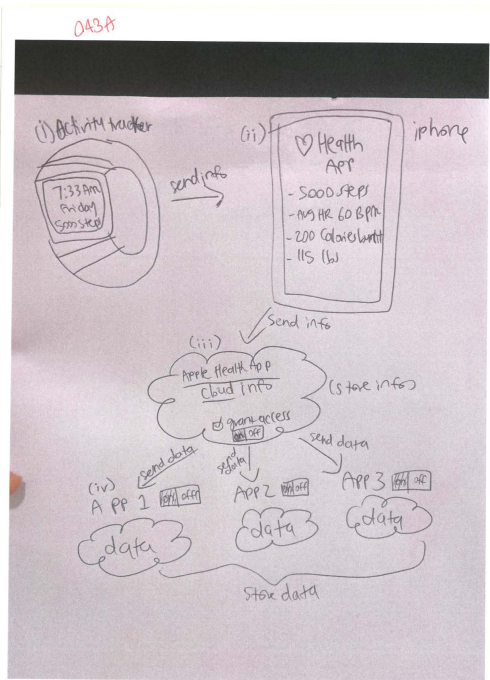 043A
(i) Activity tracker
7:33 AM
Friday
5000 steps
send info
(ii)
iphone
Health
App
- 5000 steps
- Avg HR 60 BPM
- 200 Calories burnt
- 115 lbs
send info
(iii)
Apple Health App
cloud info
grant access
on off
(store info)
send data
send data
send data
(iv)
App 1 on off
App 2 on off
App 3 on off
data
data
data
Store data